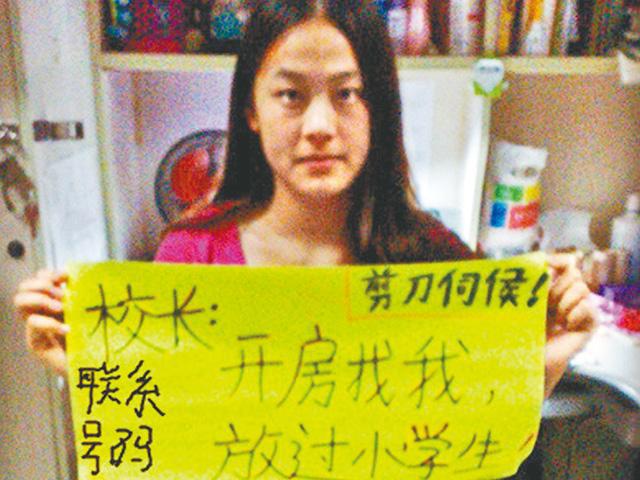 剪刀伺侯!
校长:
开房找我,
放过小学生!
联系
号码